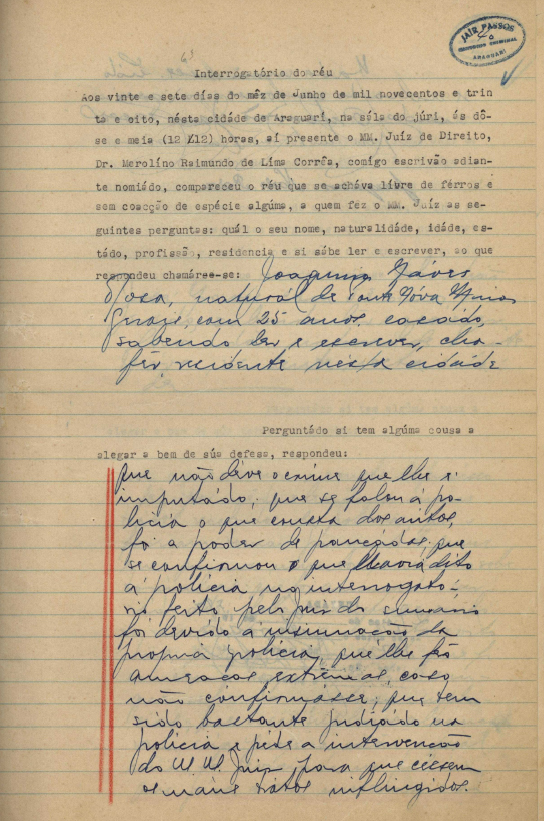 JAIR PASSOS
ARAGUARI
Interrogatório do réu
Aos vinte e sete dias do mêz de Junho de mil novecentos e trin
ta e oito, nésta cidade de Araguari, na sála do júri, ás dô-
se e meia (12 1/12) horas, aí presente o MM. Juíz de Direito,
Dr. Merolíno Raimundo de Lima Corrêa, comígo escrivão adian-
te nomiádo, compareceu o réu que se acháva livre de férros e
sem coacção de espécie algúma, a quem fez o MM. Juiz as se-
guintes perguntas: quál o seu nome, naturalidáde, idáde, es-
tádo, profissão, residencia e si sábe ler e escrever, ao que
respondeu chamár-se-se: Joaquim Náves
Rosa, naturál de Minas
Geraes, com 25 anos, casádo,
sabendo ler e escrever, cho-
fér, residente nesta cidade
Perguntádo si tem algúma cousa a
alegar a bem de súa defesa, respondeu:
que não déve o crime que lhe é
imputádo; que se falou á po-
licia o que consta dos autos,
foi a poder de pancádas; que
se confirmou o que havia dito
á policia no interrogato-
rio feito pelo Juiz do sumario
foi devido a insinuação da
propria policia, que lhe fêz
ameaças extremas, caso
não confirmásse; que tem
sido bastante judiádo na
policia e péde a intervenção
do M. M. Juiz, para que cessem
os máus trátos infligidos.